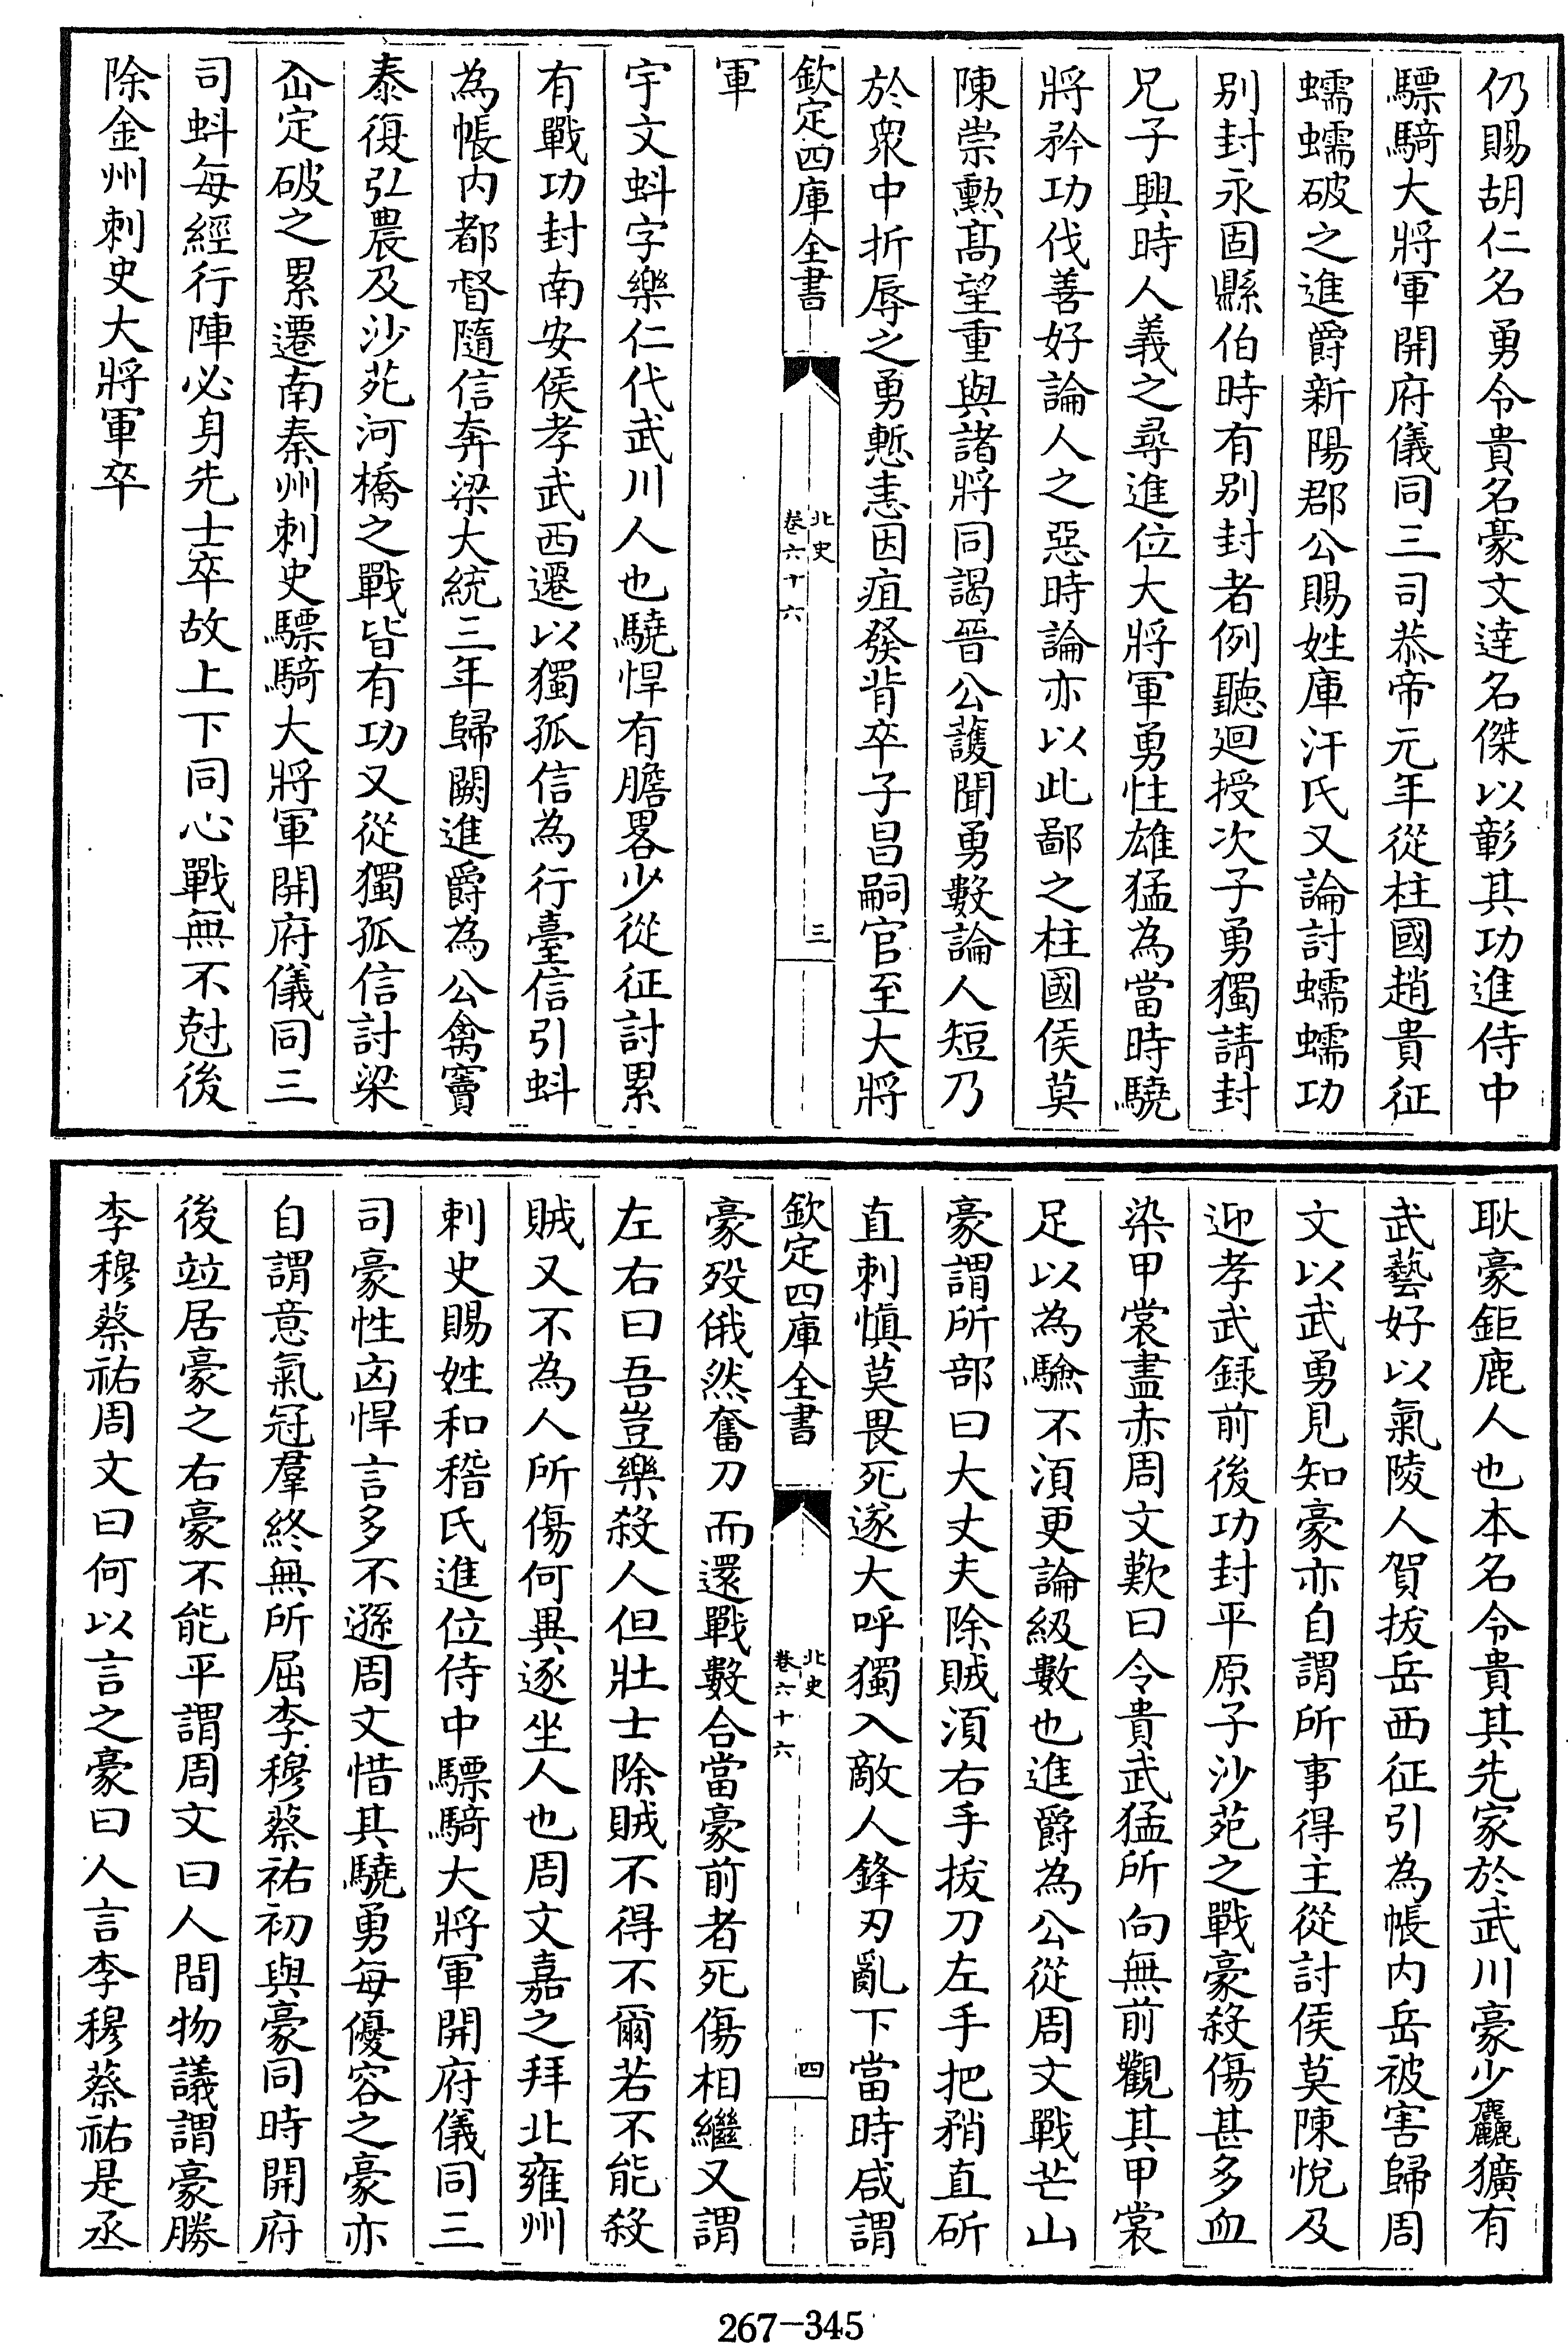 仍賜胡仁名勇令貴名豪文達名傑以彰其功進侍中
驃騎大將軍開府儀同三司恭帝元年從柱國趙貴征
蠕蠕破之進爵新陽郡公賜姓庫汗氏又論討蠕蠕功
别封永固縣伯時有别封者例聽廻授次子勇獨請封
兄子興時人義之尋進位大將軍勇性雄猛為當時驍
將矜功伐善好論人之惡時論亦以此鄙之柱國侯莫
陳崇勲髙望重與諸將同謁晉公護聞勇數論人短乃
於衆中折辱之勇慙恚因疽發背卒子昌嗣官至大將
欽定四庫全書
北史
卷六十六
三
軍
宇文虯字樂仁代武川人也驍悍有膽畧少從征討累
有戰功封南安侯孝武西遷以獨孤信為行臺信引虯
為帳内都督隨信奔梁大統三年歸闕進爵為公禽竇
泰復弘農及沙苑河橋之戰皆有功又從獨孤信討梁
仚定破之累遷南秦州刺史驃騎大將軍開府儀同三
司虯每經行陣必身先士卒故上下同心戰無不尅後
除金州刺史大將軍卒
耿豪鉅鹿人也本名令貴其先家於武川豪少麤獷有
武藝好以氣陵人賀拔岳西征引為帳内岳被害歸周
文以武勇見知豪亦自謂所事得主從討侯莫陳悦及
迎孝武録前後功封平原子沙苑之戰豪殺傷甚多血
染甲裳盡赤周文歎曰令貴武猛所向無前觀其甲裳
足以為驗不須更論級數也進爵為公從周文戰芒山
豪謂所部曰大丈夫除賊須右手拔刀左手把矟直斫
直刺慎莫畏死遂大呼獨入敵人鋒刃亂下當時咸謂
欽定四庫全書
北史
卷六十六
四
豪殁俄然奮刀而還戰數合當豪前者死傷相繼又謂
左右曰吾豈樂殺人但壯士除賊不得不爾若不能殺
賊又不為人所傷何異逐坐人也周文嘉之拜北雍州
刺史賜姓和稽氏進位侍中驃騎大將軍開府儀同三
司豪性凶悍言多不遜周文惜其驍勇每優容之豪亦
自謂意氣冠羣終無所屈李穆蔡祐初與豪同時開府
後竝居豪之右豪不能平謂周文曰人間物議謂豪勝
李穆蔡祐周文曰何以言之豪曰人言李穆蔡祐是丞
267-345